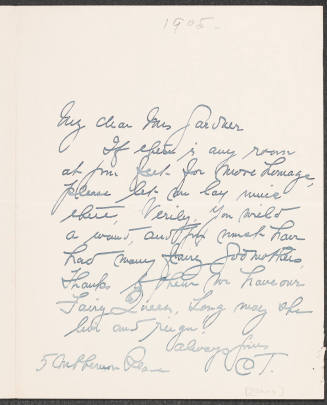 1905.
My dear Mrs Gardner
If there is any room
at your feet for more homage,
please let me lay mine
there, Verily, You wield
a wand, and you must have
had many fairy Godmothers
Thanks to them we have our
Fairy Queen, Long may she
live and reign!
always yours
T.
5 Mt Vernon Place